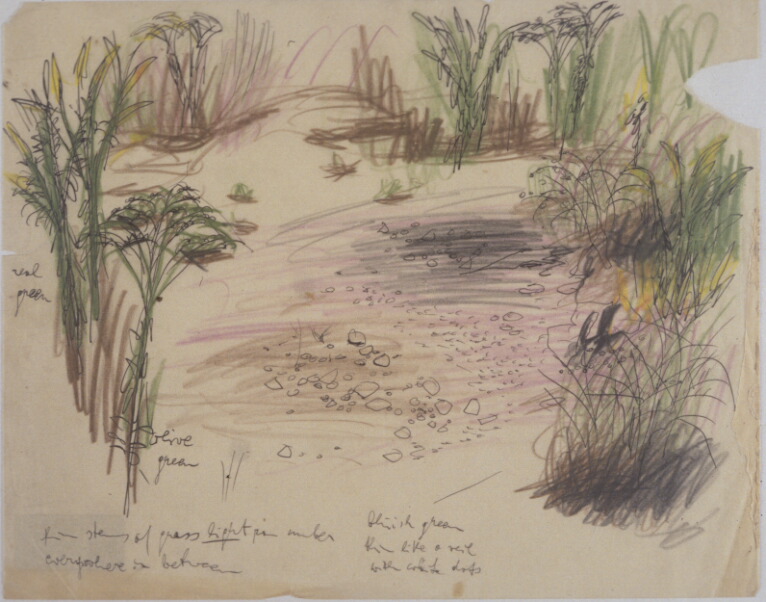 real
green
olive
green
thin stems of grass light
everywhere in between
bluish green
thin like a veil
with white dots